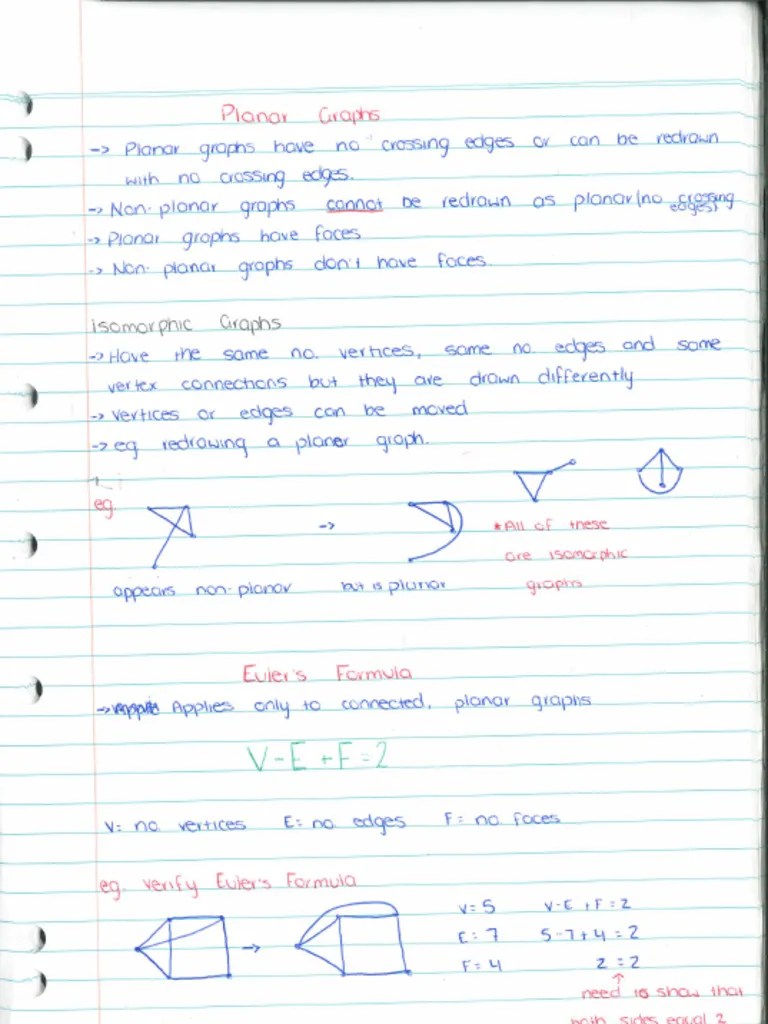 Planar Graphs
-> Planar graphs have no crossing edges or can be redrawn
with no crossing edges.
-> Non-planar graphs cannot be redrawn as planar (no crossing
edges)
-> Planar graphs have faces
-> Non-planar graphs don't have faces.
Isomorphic Graphs
-> Have the same no. vertices, same no edges and same
vertex connections but they are drawn differently
-> vertices or edges can be moved
-> eg redrawing a planer graph.
eg. ->
* All of these
are isomorphic
graphs
appears non-planar but is planar
Euler's Formula
-> Applies only to connected, planar graphs
V-E+F=2
V= no. vertices E= no edges F= no. faces
eg. verify Euler's Formula
->
V=5 V-E+F=2
E=7 5-7+4=2
F=4 2=2
need to show that
both sides equal 2